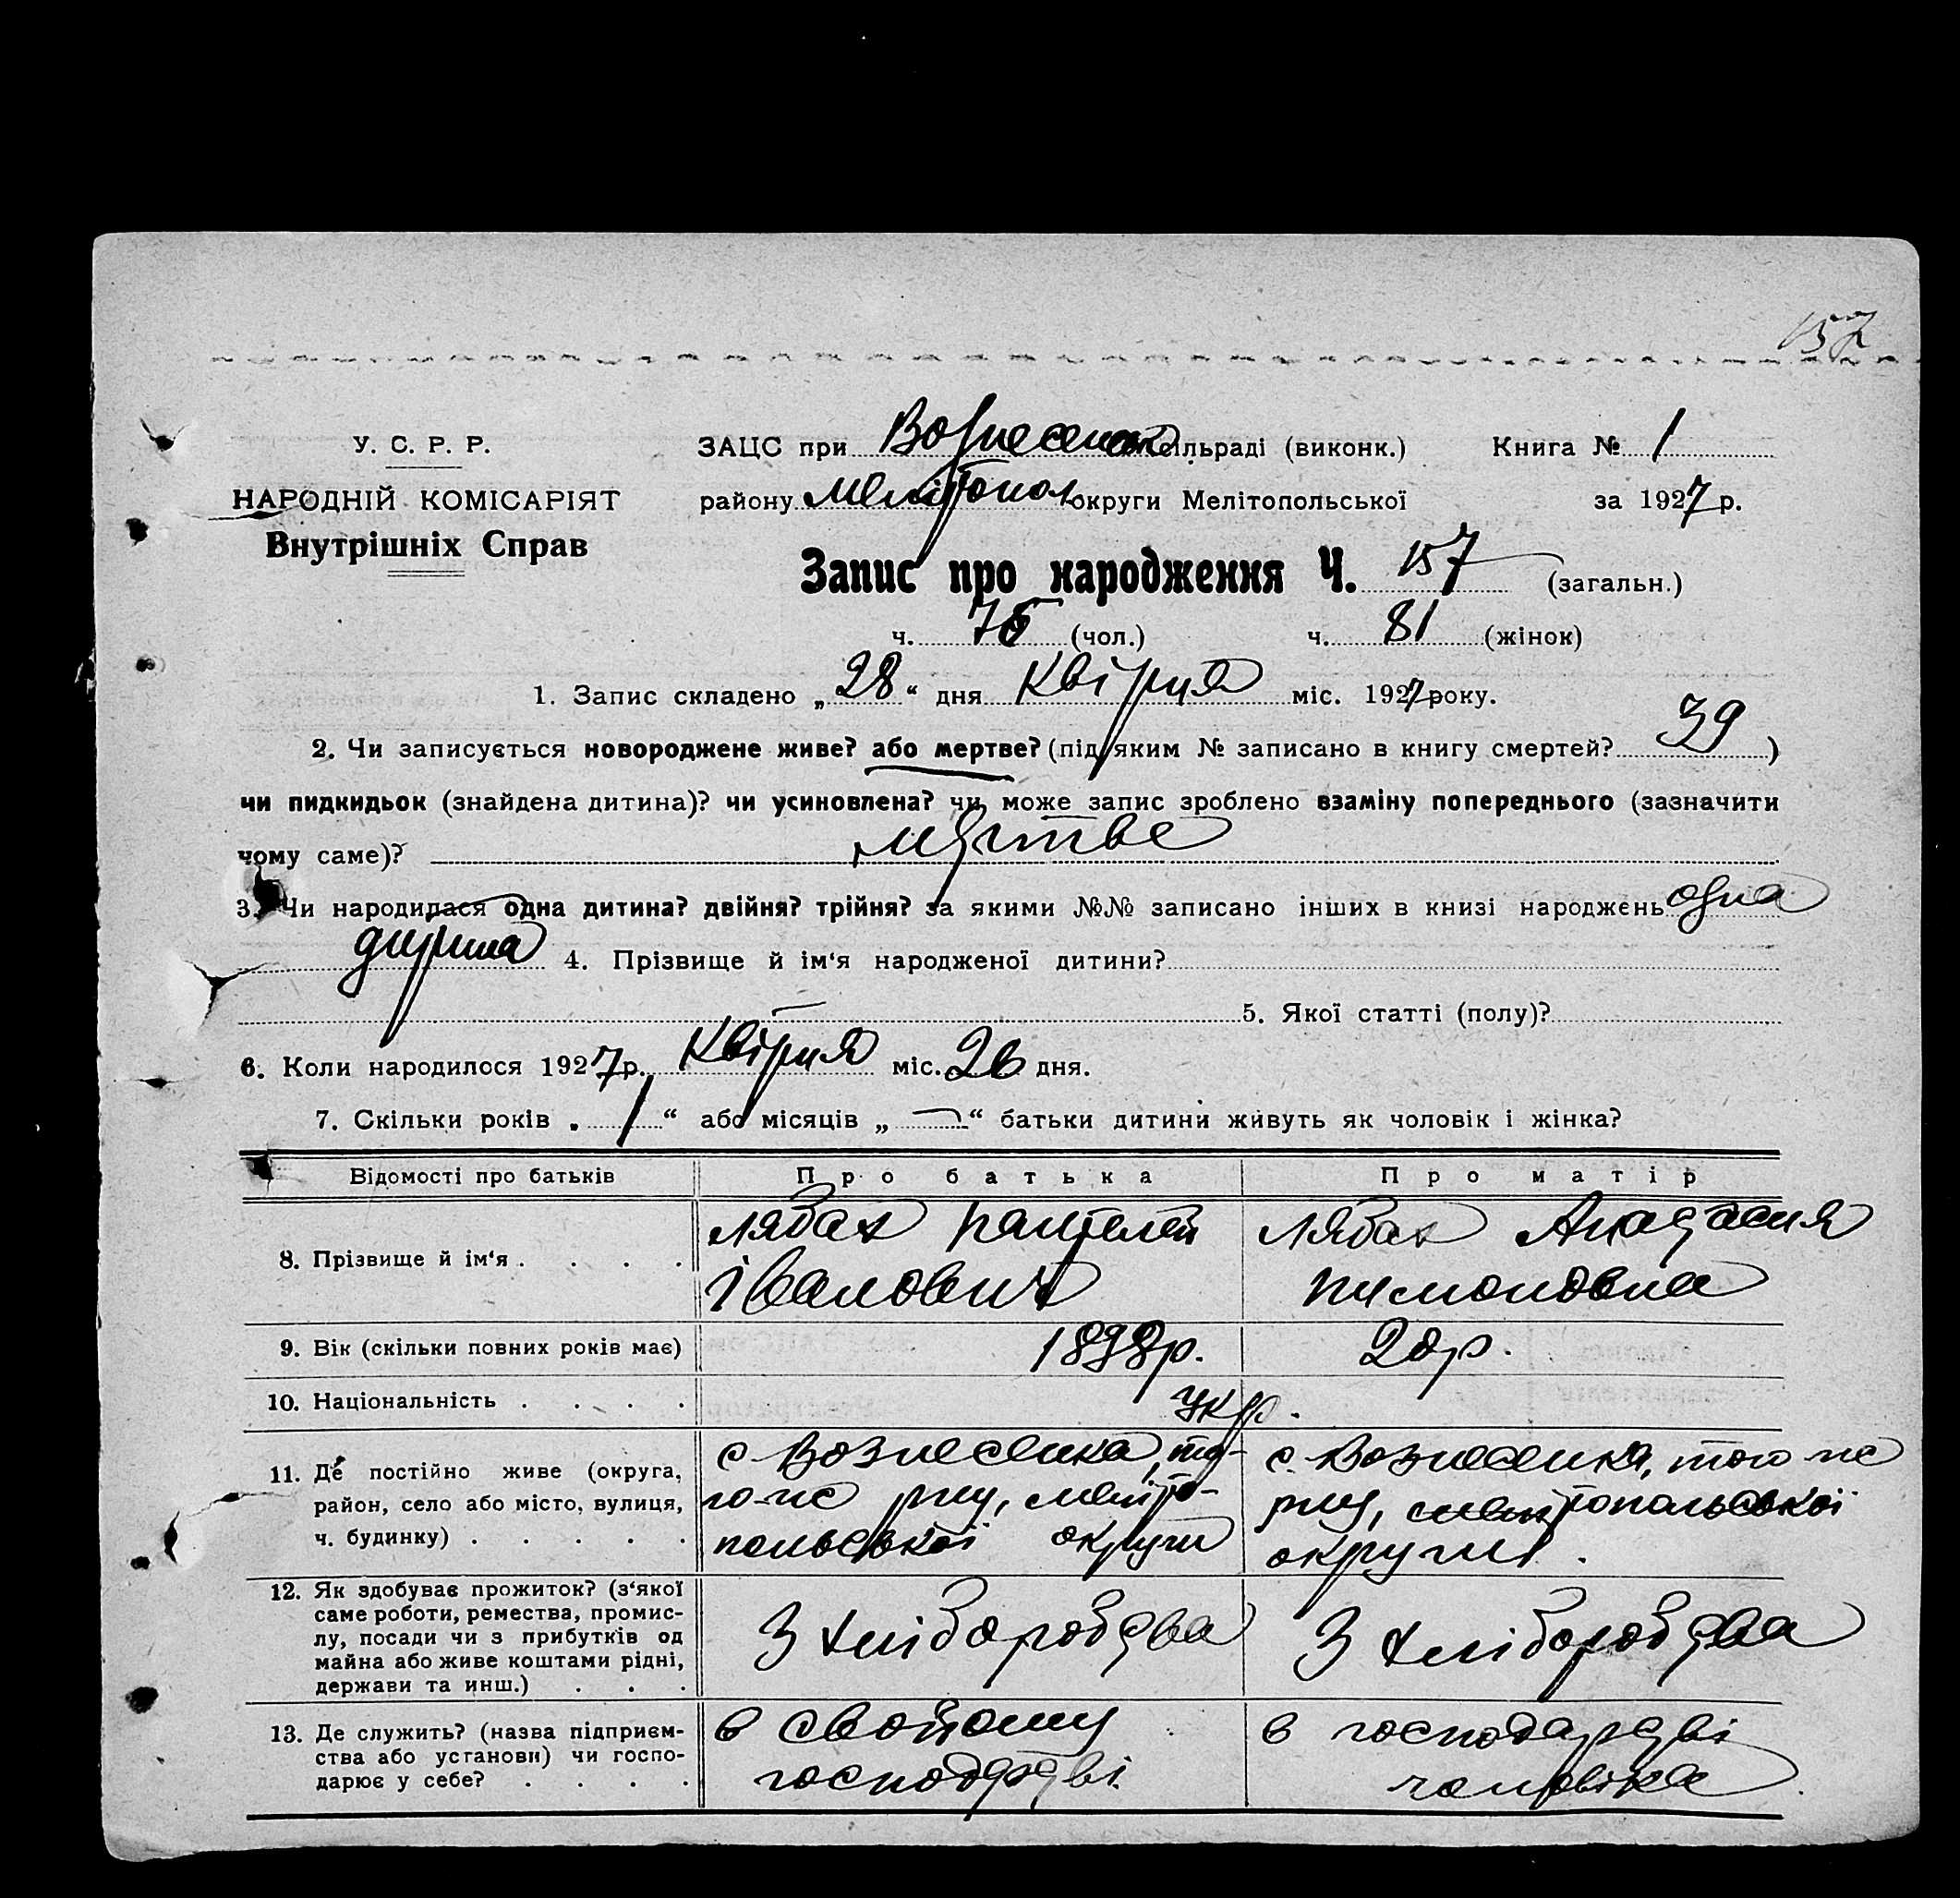 157
У. С. Р. Р.
НАРОДНІЙ КОМІСАРІЯТ
Внутрішніх Справ
ЗАЦС при Вознесенск сільраді (виконк.) Книга № 1
району Мелітопол округи Мелітопольської за 1927 р.
Запис про народження Ч. 157 (загальн.)
ч. 76 (чол.) ч. 81 (жінок)
1. Запис складено „28“ дня Квітня міс. 1927 року.
2. Чи записується новороджене живе? або мертве? (під яким № записано в книгу смертей? 39 )
чи пидкидьок (знайдена дитина)? чи усиновлена? чи може запис зроблено взаміну попереднього (зазначити
чому саме)? мертве
3. Чи народилася одна дитина? двійня? трійня? за якими №№ записано інших в книзі народжень одна
дитина 4. Прізвище й ім‘я народженої дитини?
5. Якої статті (полу)?
6. Коли народилося 1927 р. Квітня міс. 26 дня.
7. Скільки років „ 1 “ або місяців „ — “ батьки дитини живуть як чоловік і жінка?
Відомості про батьків Про батька Про матір
8. Прізвище й ім‘я . . . . Лябах Пантелей Лябах Анастасия
Іванович Пимоновна
9. Вік (скільки повних років має) 1898р. 20р.
10. Національність . . . . укр.
11. Де постійно живе (округа, с Вознесенка, то- с. Вознесенка, того же
район, село або місто, вулиця, го-же рну, меліто- рну, мелітопольської
ч. будинку) . . . . . польської округи округи.
12. Як здобуває прожиток? (з‘якої
саме роботи, ремества, промис-
лу, посади чи з прибутків од З хліборобства З хліборобства
майна або живе коштами рідні,
держави та инш.) . . .
13. Де служить? (назва підприєм- в свойому в господарстві
ства або установи) чи госпо- господарстві чоловіка
дарює у себе? . . . .